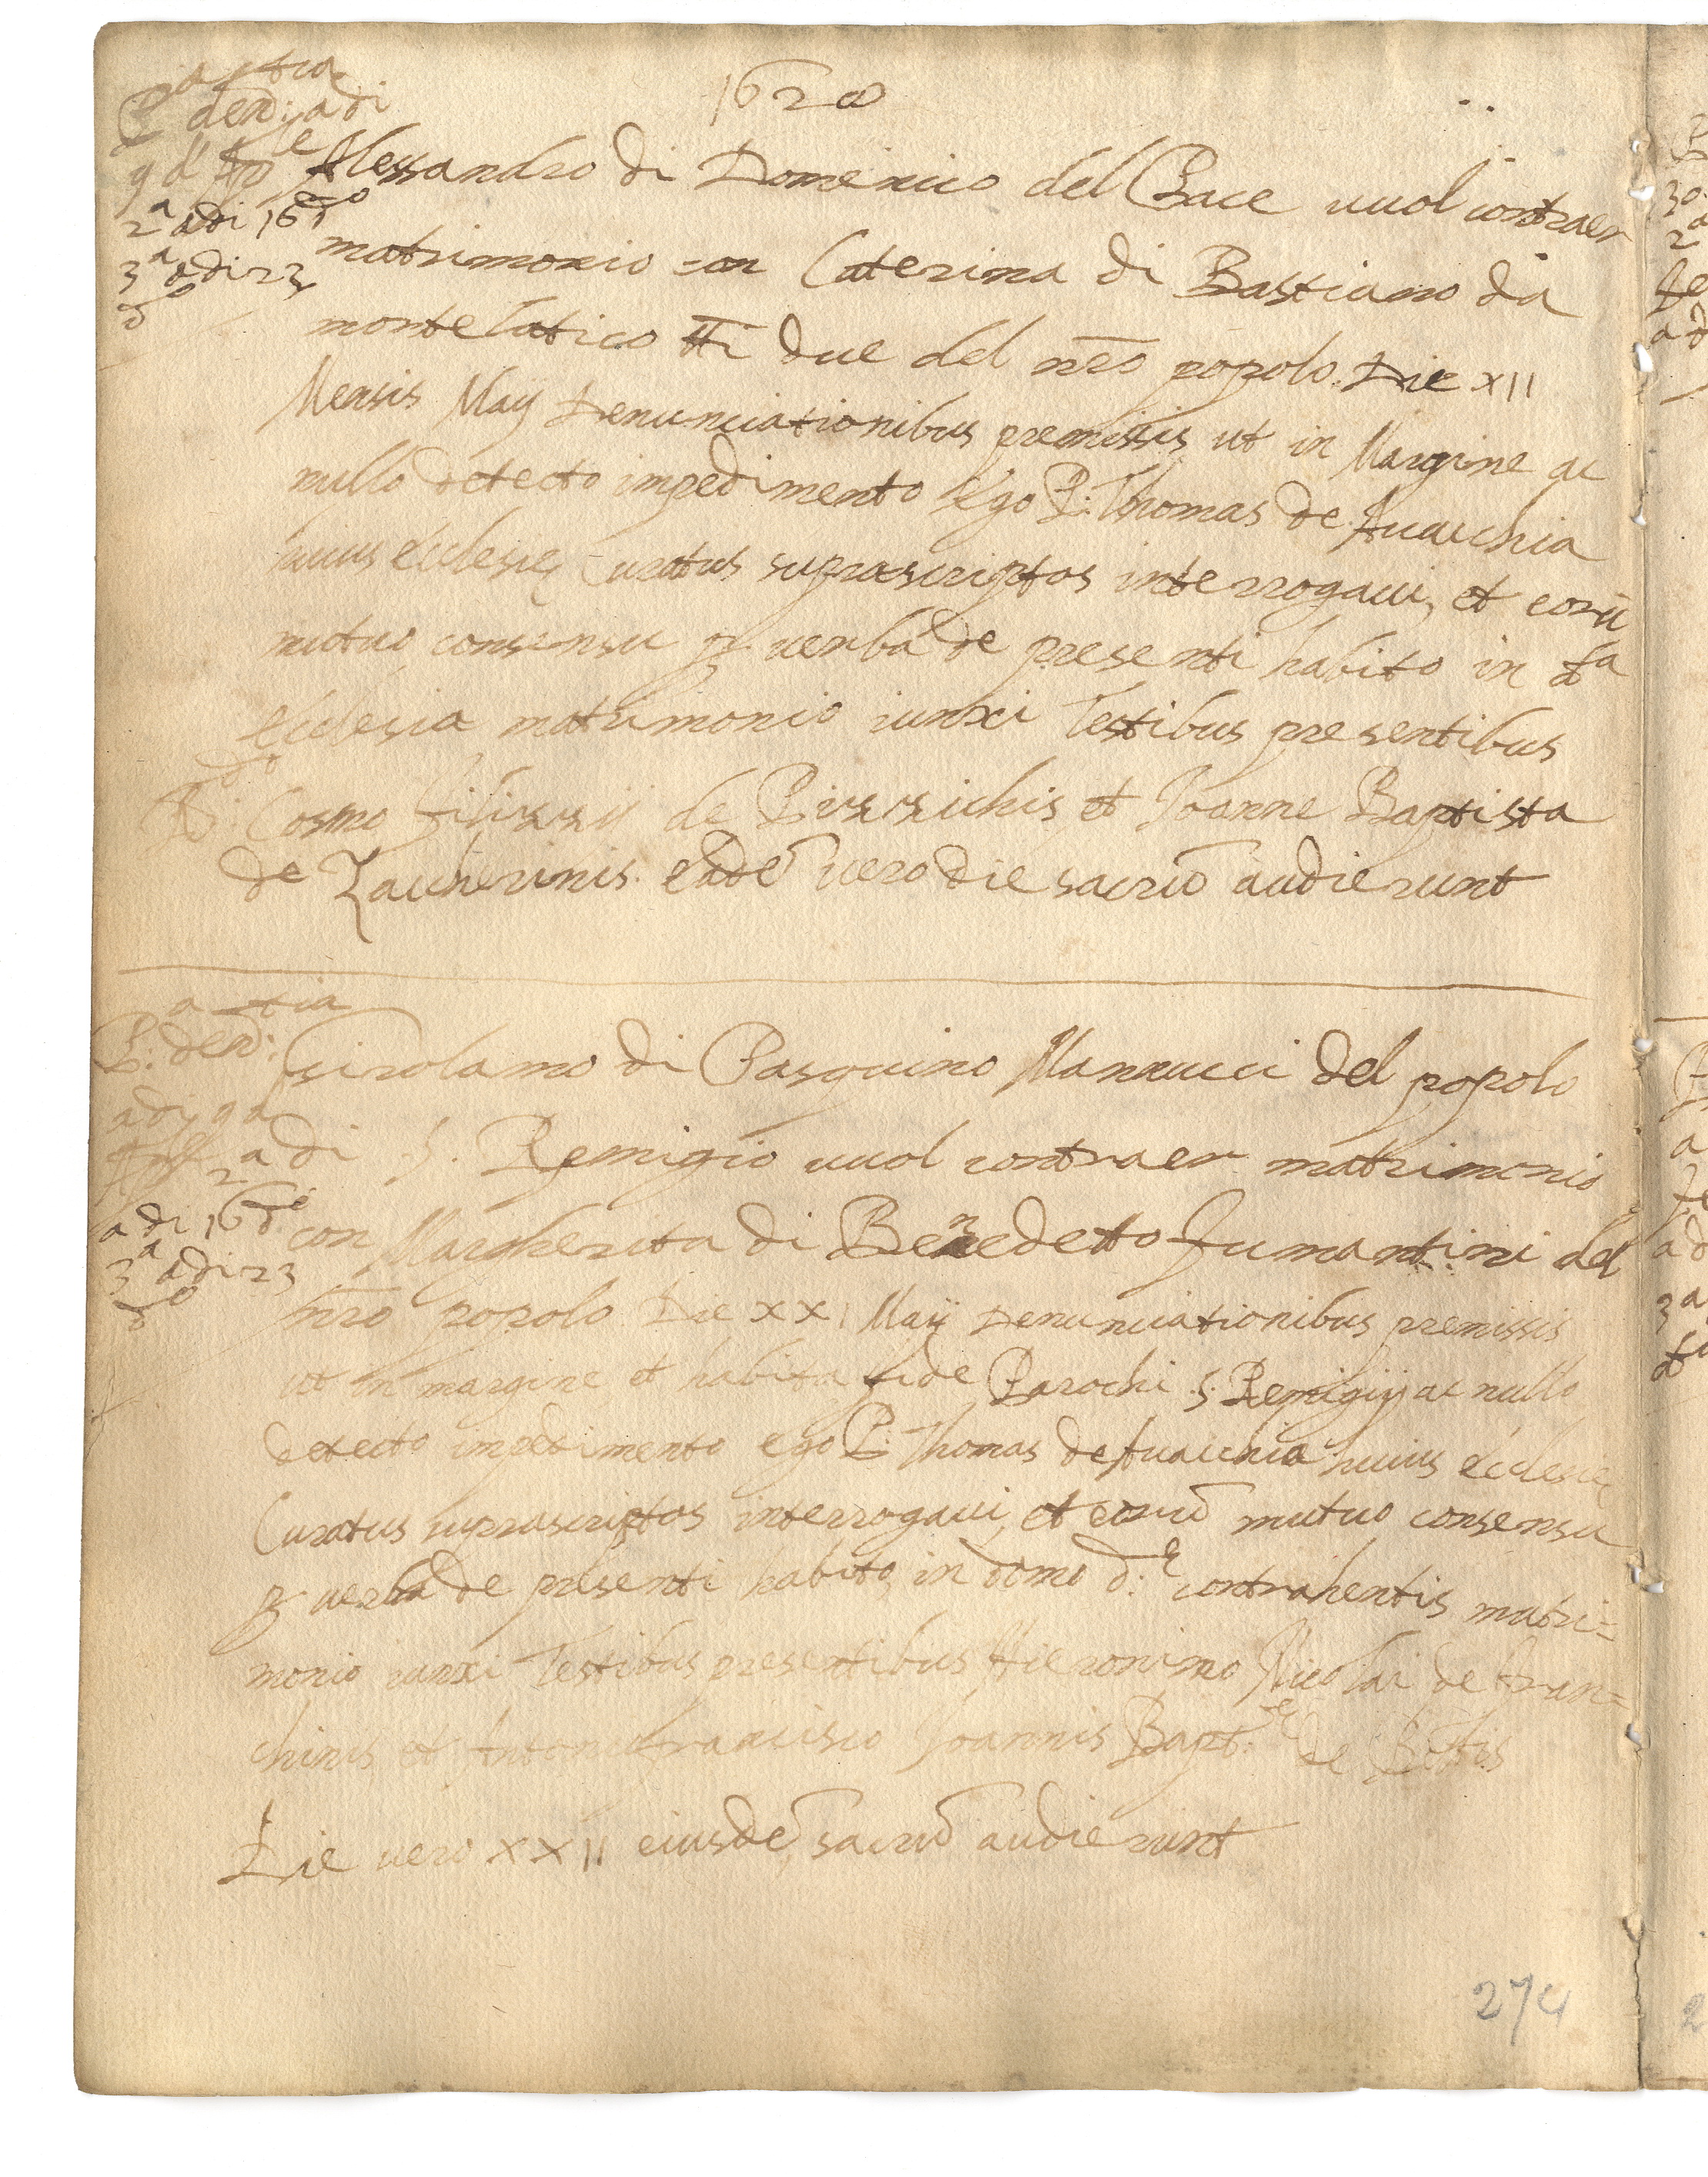 1620
P.a den.tia adi
9 d'Ap.le
2.a adi 16 d.o
3.a adi 23
d.o
Alessandro di Domenico del Pace uuol contraer
matrimonio con Caterina di Bastiano da
monte Catico tti due del nr̃o popolo. Die XII
Mensis Maij Denunciationibus premissis ut in Margine ac
nullo detecto impedimento Ego P. Thomas de
huius ecclesie Curatus suprascriptos interrogaui, et eorũ
mutuo consensu p verba de presenti habito in d.a
ecclesia matrimonio iunxi Testibus presentibus
R.do Cosmo de et Joanne Baptista
de Zaccherinis. eadẽ uero die sacrũ audierunt
P.a den.tia
adi 9 d
2.a adi
adi 16 d.o
3.a adi 23
d.o
Girolamo di Pasquino Mannucci del popolo
S. Remigio uuol contraer matrimonio
con Margherita di Benedetto Fumantini del
nr̃o popolo Die XXI Maij Denunciationibus premissis
ut in margine et habita fide Parochi S. Remigij ac nullo
detecto impedimento ego P. Thomas de huius ecclesie
Curatus suprascriptos interrogaui, et eorũ mutuo consensu
p verba de presenti habito, in domo d.e contrahentis matri=
monio iunxi Testibus presentibus Hieronimo Nicolai de Fran=
chinis et Antonio francisco Joannis Bapt.e de
Die uero XXII eiusdẽ, sacrũ audierunt
274